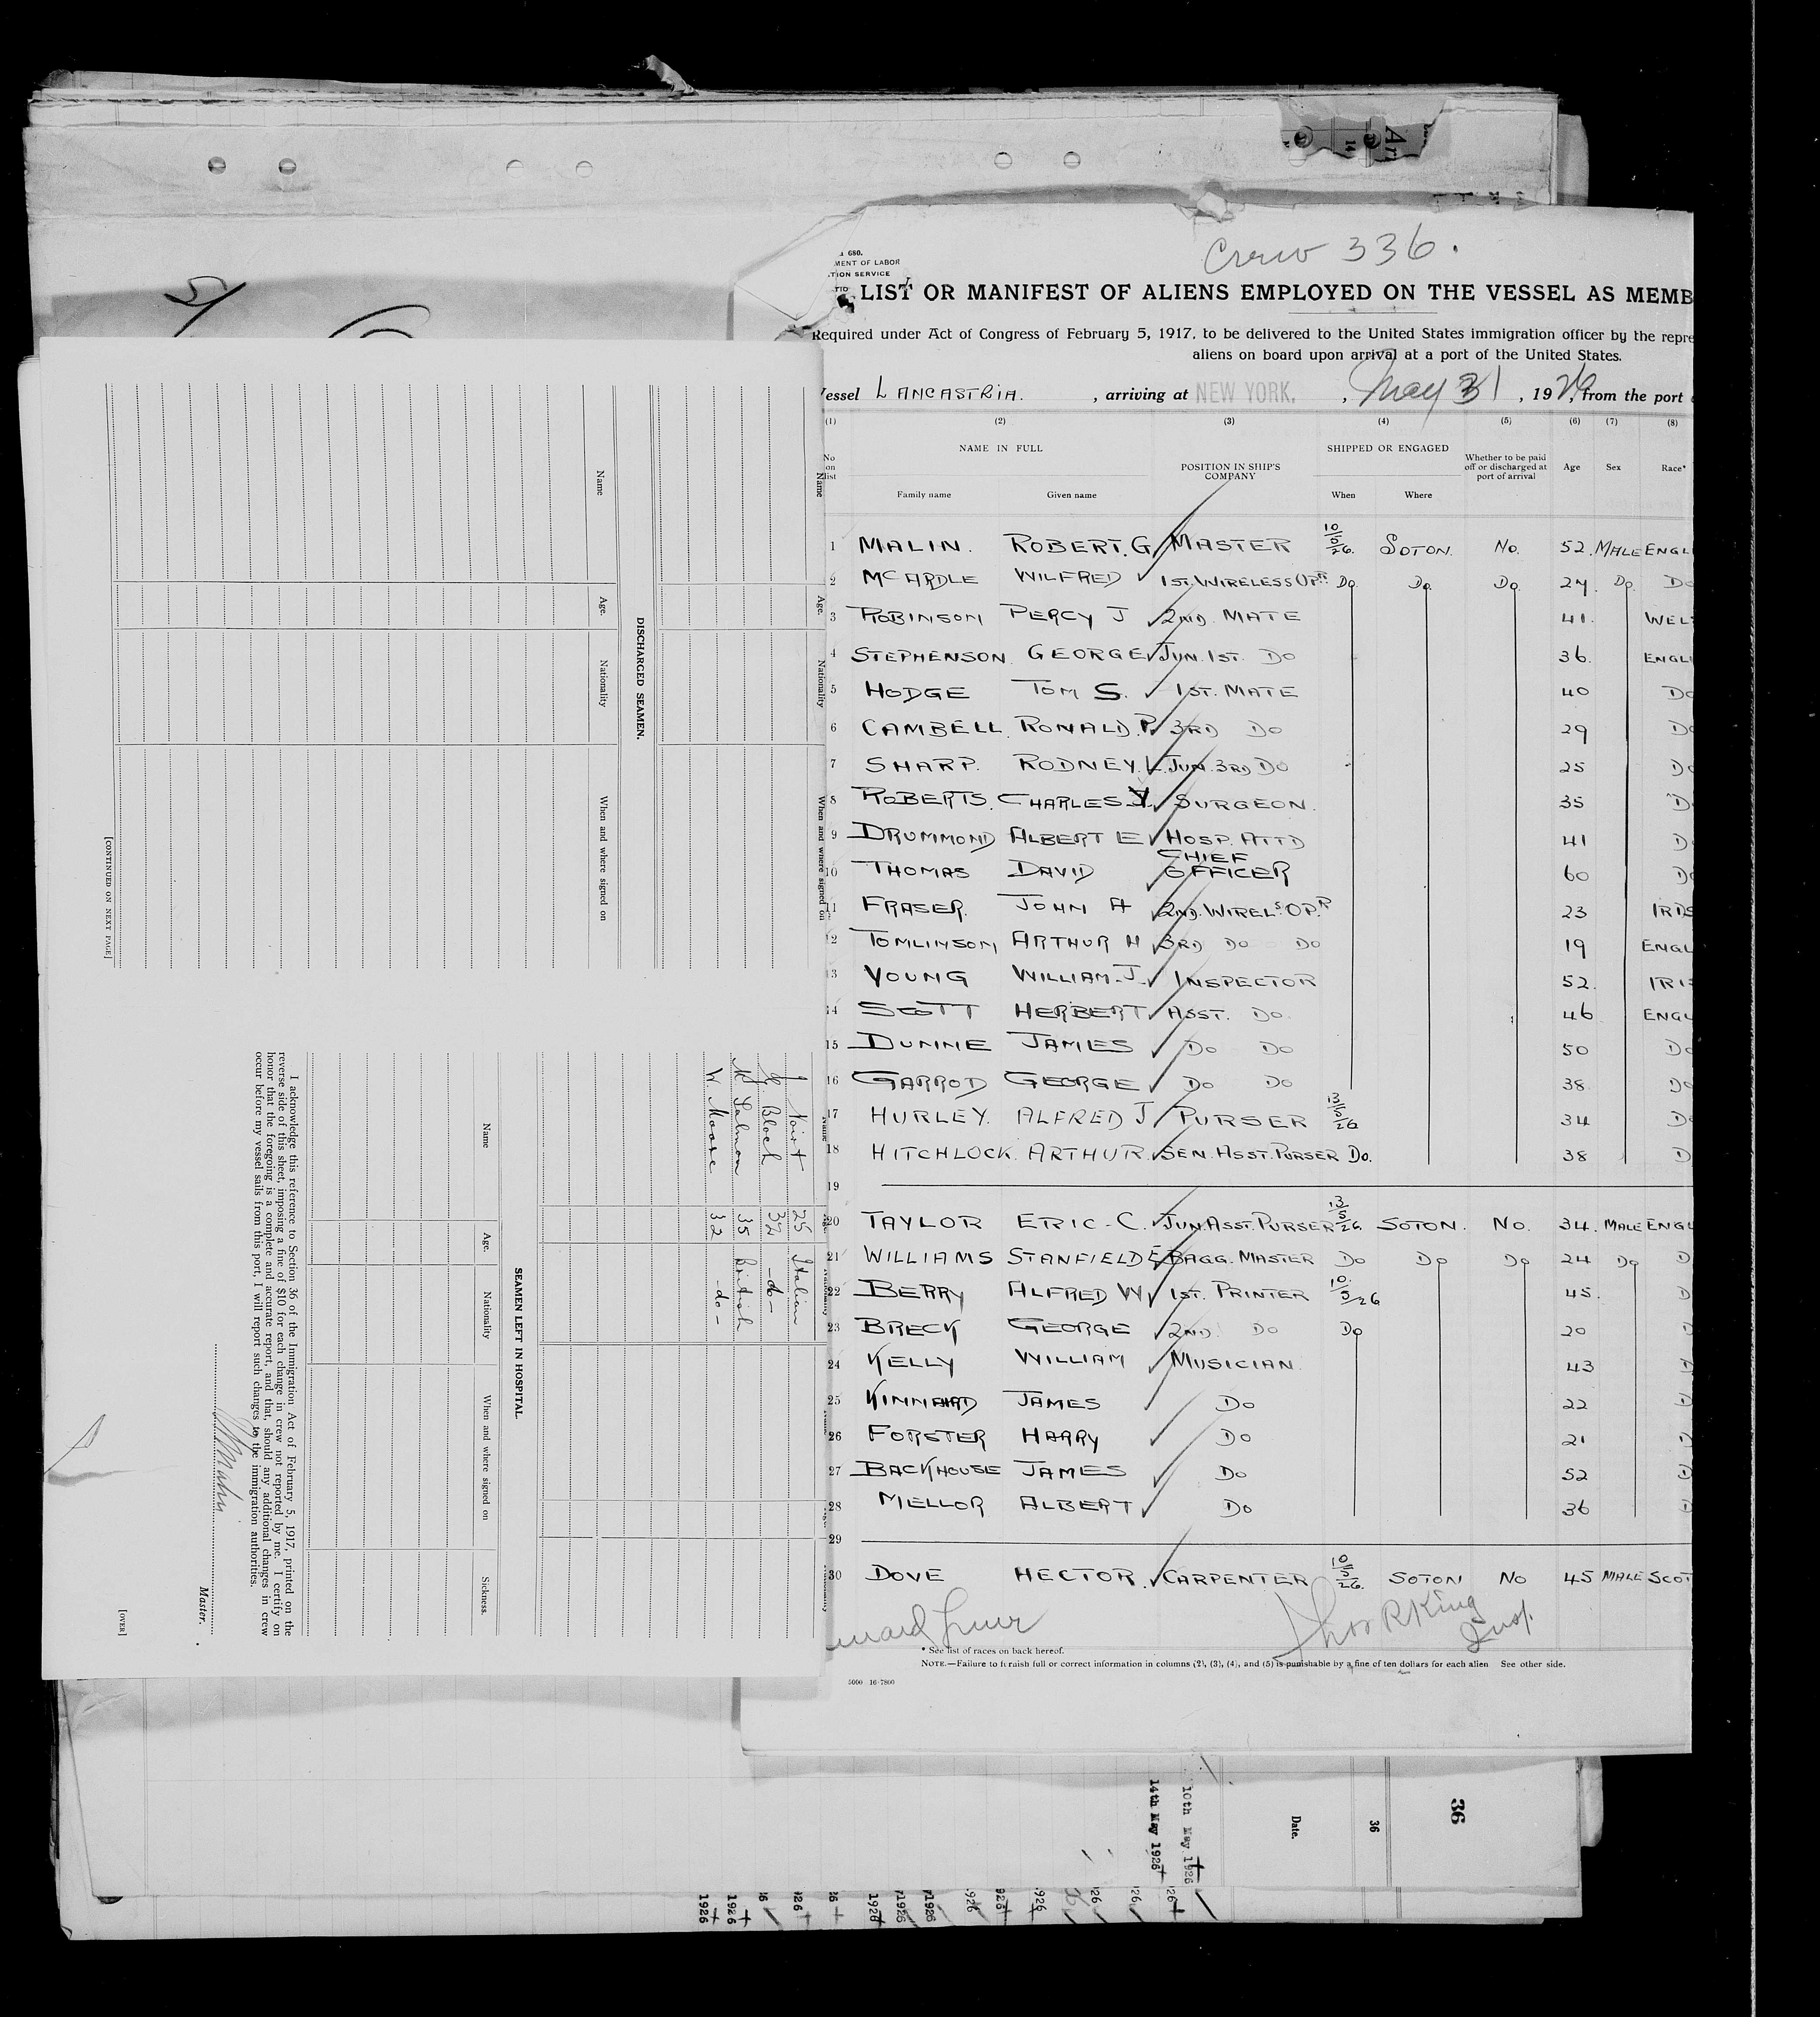 Crew 336.
680.
MENT OF LABOR
TION SERVICE
LIST OR MANIFEST OF ALIENS EMPLOYED ON THE VESSEL AS MEMB
Required under Act of Congress of February 5, 1917, to be delivered to the United States immigration officer by the repre
aliens on board upon arrival at a port of the United States.
Vessel LANCASTRIA. , arriving at NEW YORK, , May 31 , 1926, from the port
(1) (2) (3) (4) (5) (6) (7) (8)
No on list NAME IN FULL POSITION IN SHIP'S COMPANY SHIPPED OR ENGAGED Whether to be paid off or discharged at port of arrival Age Sex Race*
Family name Given name When Where
1 MALIN. ROBERT. G MASTER 10/5/26. SOTON. No. 52. MALE ENGL
2 MCARDLE WILFRED 1ST. WIRELESS OPR Do Do Do 24. Do Do
3 ROBINSON PERCY J 2ND. MATE 41. WEL
4 STEPHENSON GEORGE JUN. 1ST. DO 36. ENGL
5 HODGE TOM S. 1ST. MATE 40 DO
6 CAMBELL RONALD. P. 3RD DO 29 DO
7 SHARP. RODNEY. L. JUN. 3RD DO 25 DO
8 ROBERTS. CHARLES SURGEON. 35 DO
9 DRUMMOND ALBERT E HOSP. ATTD 41 D
10 THOMAS DAVID CHIEF OFFICER 60 DO
11 FRASER. JOHN A 2ND. WIRELS. OPR 23 IRIS
12 TOMLINSON ARTHUR H 3RD DO DO 19 ENGL
13 YOUNG WILLIAM. J. INSPECTOR 52. IRI
14 SCOTT HERBERT ASST. DO. 46 ENGL
15 DUNNE JAMES DO DO 50 DO
16 GARROD GEORGE DO DO 38 DO
17 HURLEY. ALFRED J PURSER 13/5/26 34 D
18 HITCHLOCK. ARTHUR. SEN. ASST. PURSER Do. 38 D
19
20 TAYLOR ERIC. C. JUN. ASST. PURSER 13/5/26 SOTON. NO. 34. MALE ENGL
21 WILLIAMS STANFIELD E BAGG. MASTER DO DO DO 24 DO D
22 BERRY ALFRED W 1ST. PRINTER 10/5/26 45. D
23 BRECK GEORGE 2ND. DO DO 20
24 KELLY WILLIAM MUSICIAN. 43
25 KINNAIRD JAMES DO 22
26 FORSTER HARRY DO 21
27 BACKHOUSE JAMES DO 52
28 MELLOR ALBERT DO 36
29
30 DOVE HECTOR. CARPENTER 10/5/26. SOTON NO 45 MALE SCOT
Thos R King
Insp.
* See list of races on back hereof.
NOTE.—Failure to furnish full or correct information in columns (2), (3), (4), and (5) is punishable by a fine of ten dollars for each alien See other side.
5000 16-7800
Name Age. Nationality When and where signed on
DISCHARGED SEAMEN.
Name Age. Nationality When and where signed on
[CONTINUED ON NEXT PAGE]
25 Italian
Bloch 32 -do-
Salmon 35 British
W. Moore 32 -do-
SEAMEN LEFT IN HOSPITAL
Name Age. Nationality When and where signed on Sickness.
I acknowledge this reference to Section 36 of the Immigration Act of February 5, 1917, printed on the
reverse side of this sheet, imposing a fine of $10 for each change in crew not reported by me. I certify on
honor that the foregoing is a complete and accurate report, and that, should any additional changes in crew
occur before my vessel sails from this port, I will report such changes to the immigration authorities.
Malin
Master.
[OVER]
36
36
Date.
10th May 1926
14th May 1926